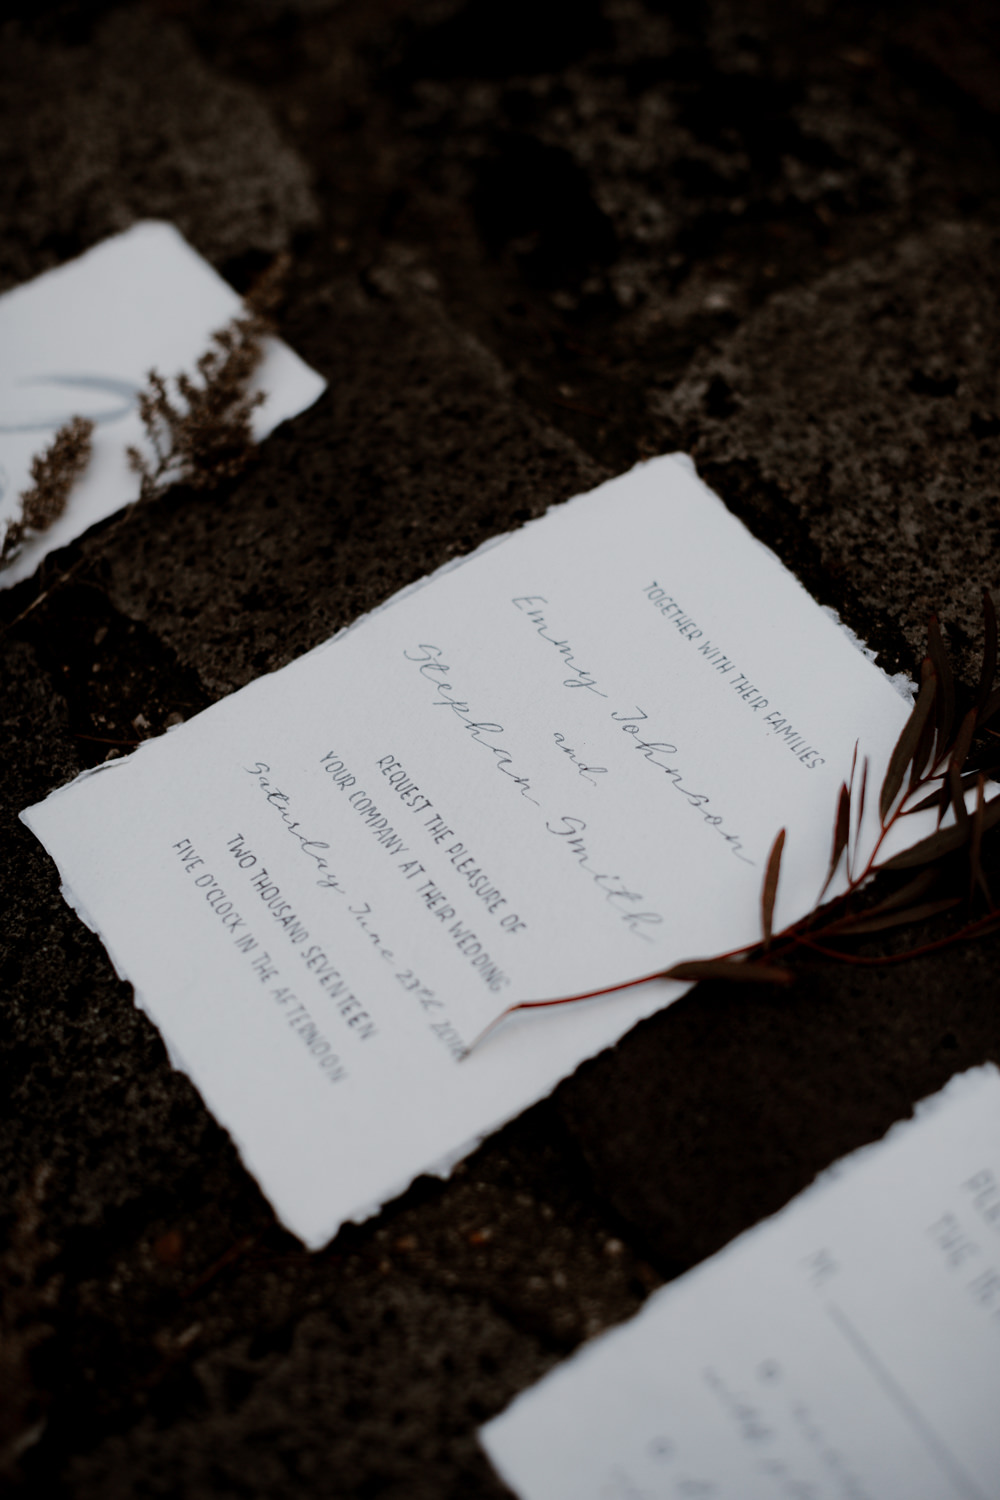 TOGETHER WITH THEIR FAMILIES
Emmy Johnson
and
Stephan Smith
REQUEST THE PLEASURE OF
YOUR COMPANY AT THEIR WEDDING
Saturday June 23rd
TWO THOUSAND SEVENTEEN
FIVE O'CLOCK IN THE AFTERNOON
THE
M